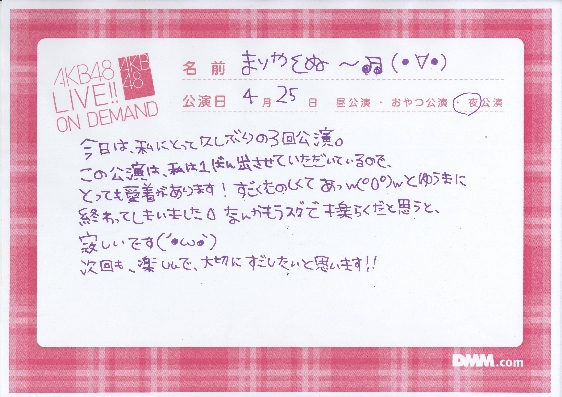 AKB48
LIVE!!
ON DEMAND
AKB
48
名前 まりやきぬ 〜♫(•∀•)
公演日 4月25日 昼公演・おやつ公演・夜公演
今日は、私にとって久しぶりの3回公演。
この公演は、私は1ばん出させていただいているので、
とっても愛着があります！すごくたのしくてあっw(°O°)wとゆうまに
終わってしまいました。なんかもうスグで千秋らくだと思うと、
寂しいです(´•ω•`)
次回も、楽しんで、大切にすごしたいと思います!!
DMM.com